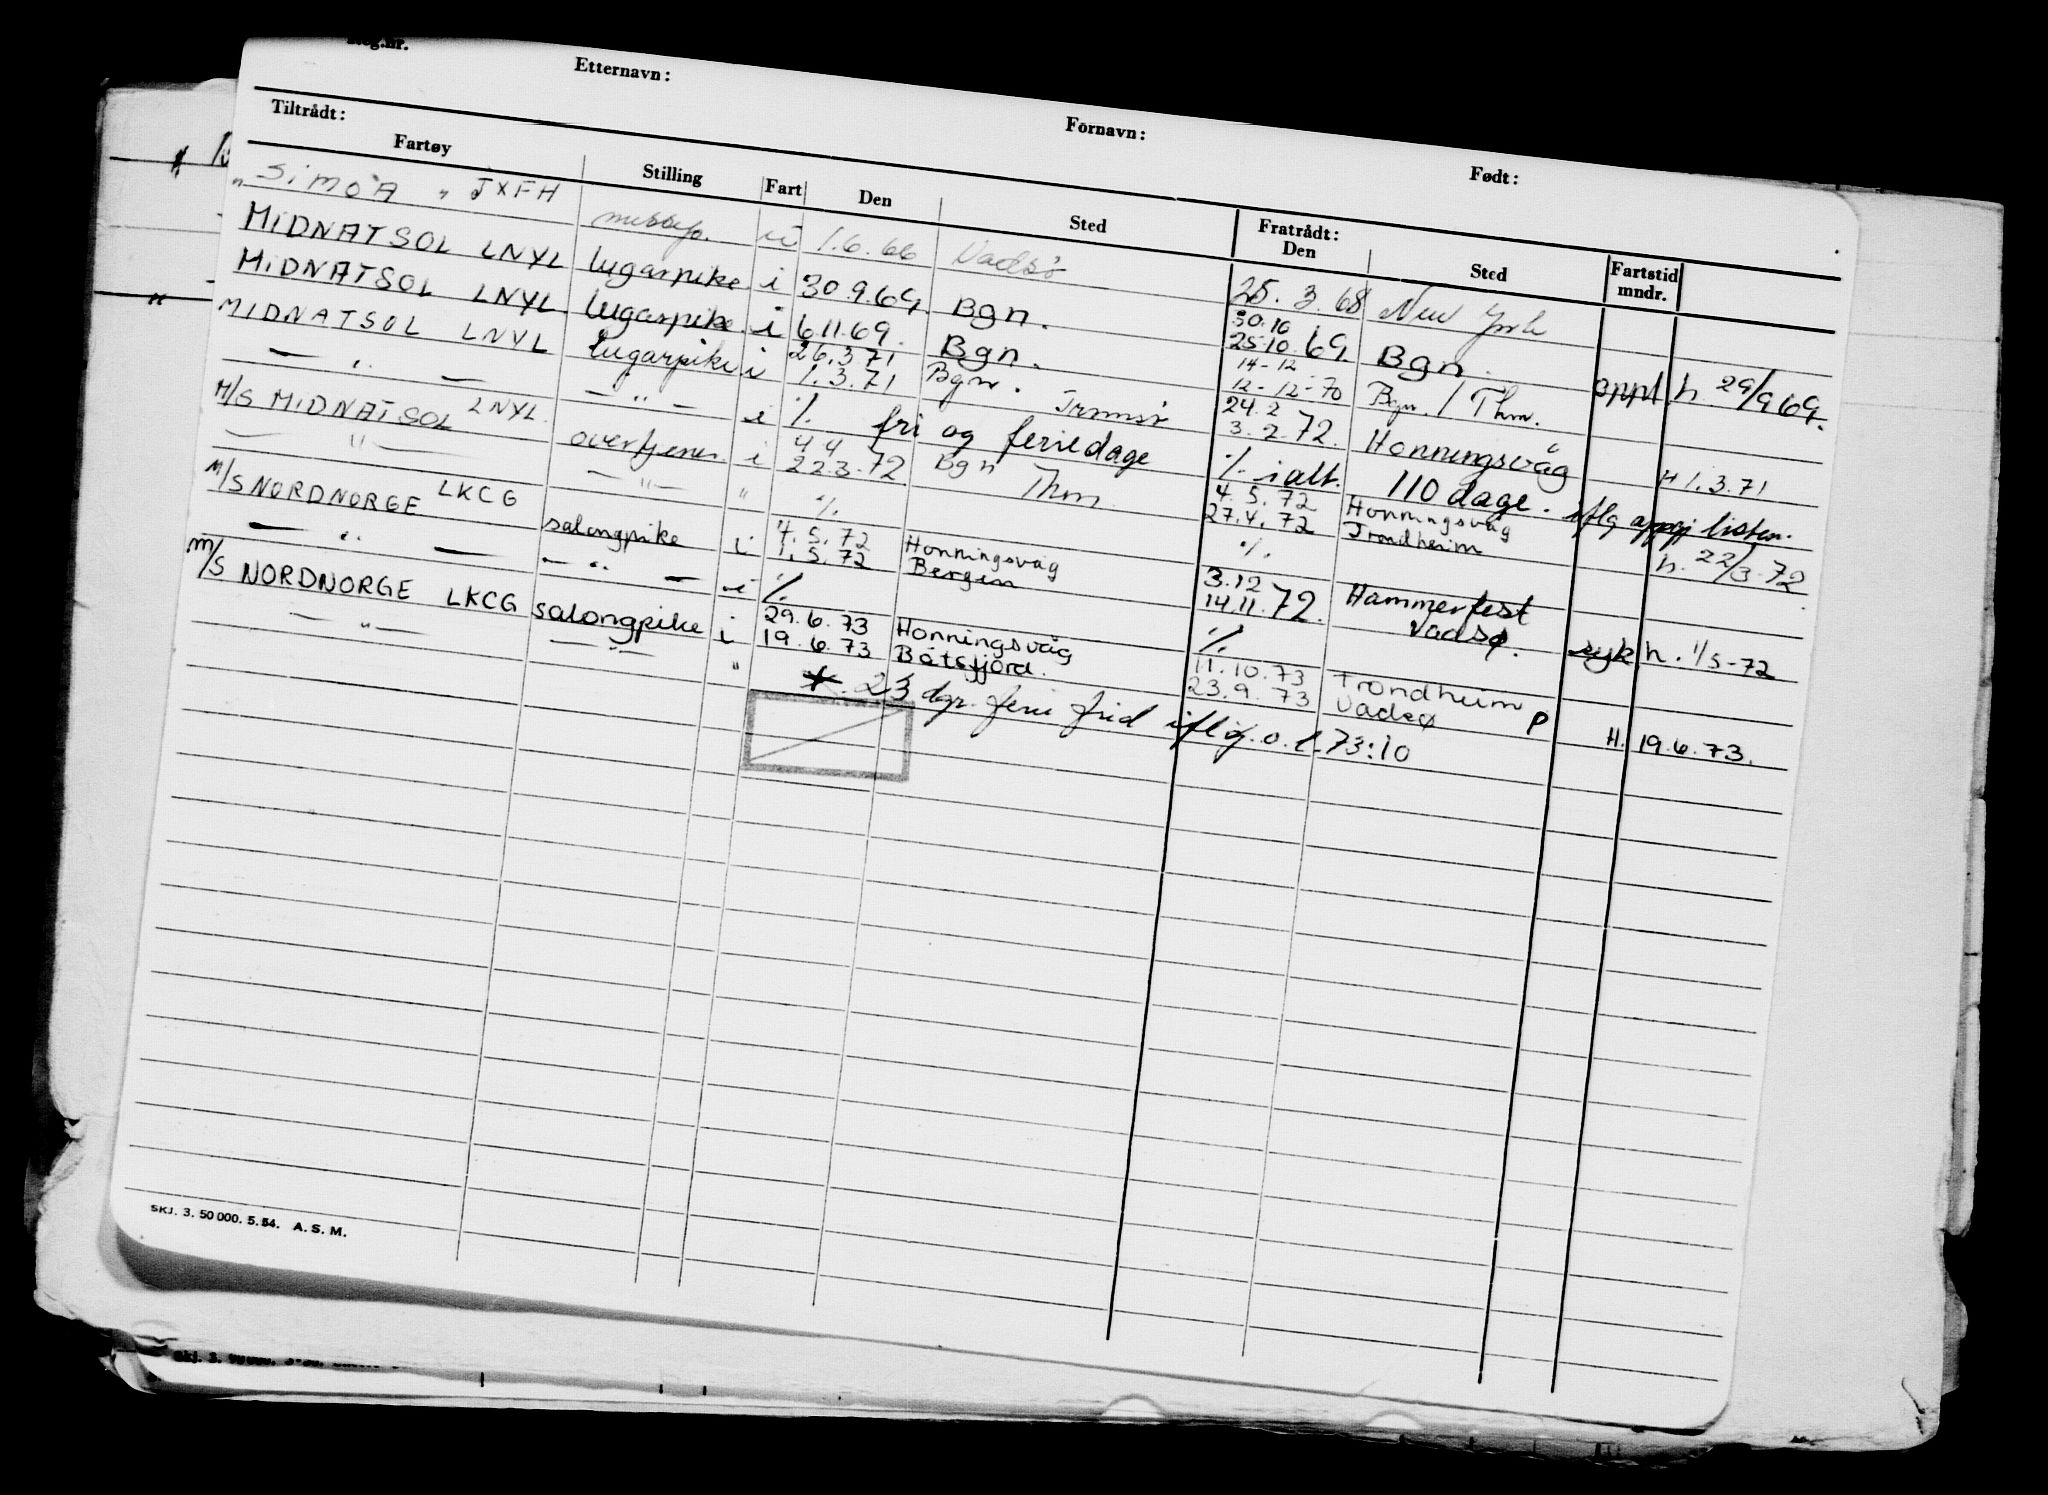 Etternavn: Fornavn: Født:
Tiltrådt: Fratrådt:
Fartøy Stilling Fart Den Sted Den Sted Fartstid mndr.
" SIMOA " JXFH u 1.6.66 Vadsø 25.3.68 New York
MIDNATSOL LNYL lugarpike i 30.9.69 Bgn. 30.10 25.10.69 Bgn. oppl. h 29/9 69.
MIDNATSOL LNYL lugarpike i 6.11.69. Bgn. 14-12 12-12-70 Bgn. / Thm.
MIDNATSOL LNYL lugarpike i 26.3.71 1.3.71 Bgn. Tromsø 24.2 3.2.72. Honningsvåg H 1.3.71
— " — — " — i % fri og feriedage % ialt. 110 dage. iflg listen.
M/S MIDNATSOL LNYL. i 4.4 22.3.72 Bgn Thm 4.5.72 27.4.72 Honningsvåg Trondheim h. 22/3-72
— " — — " — " % %
M/S NORDNORGE LKCG salongpike i 4.5.72 1.5.72 Honningsvåg Bergen 3.12 14.11.72. Hammerfest Vadsø. syk h. 1/5-72
— " — — " — i % %
M/S NORDNORGE LKCG salongpike i 29.6.73 19.6.73 Honningsvåg Båtsfjord. 11.10.73 23.9.73 Trondheim Vadsø P H. 19.6.73.
— " — — " — " 23 dgr. ferie frid iflg. o.l. 73:10
SKJ. 3. 50 000. 5. 54. A. S. M.